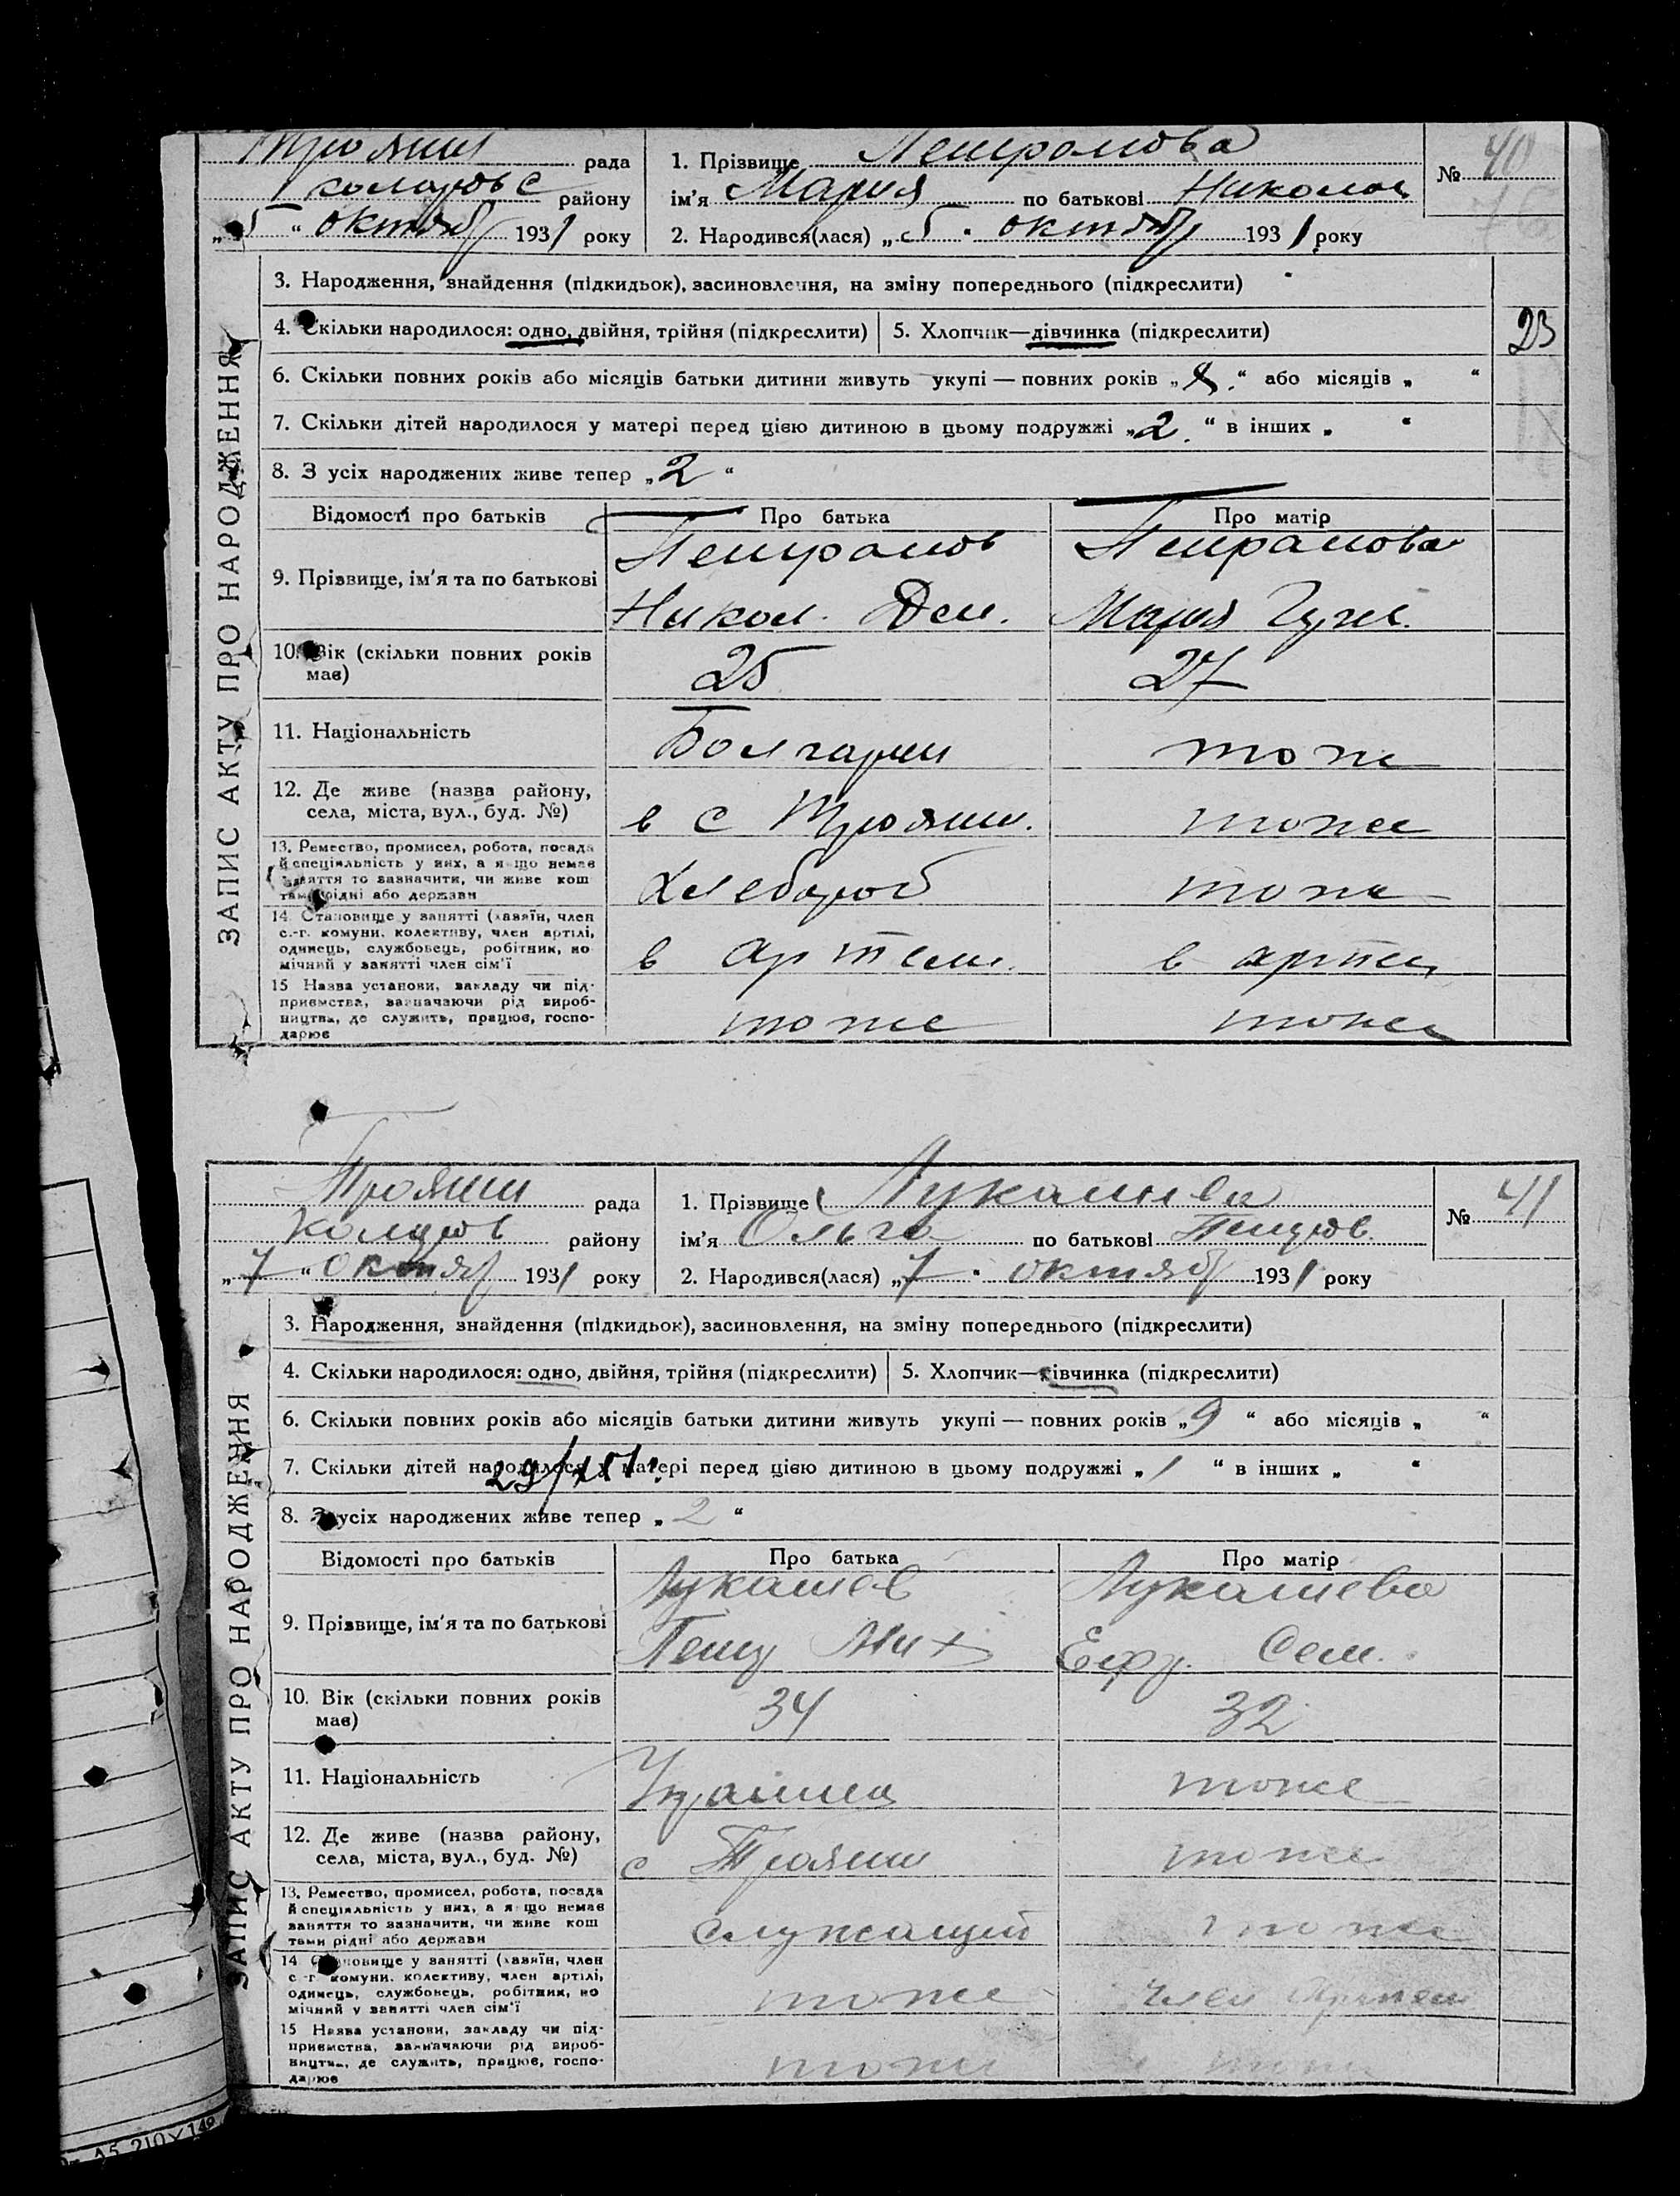 Троян рада
района
„5“ октяб 1931 року
1. Прізвище Петрамова
ім'я Мария по батькові Николов
2. Народився(лася) „5“ октяб 1931 року
№ 40
ЗАПИС АКТУ ПРО НАРОДЖЕННЯ
3. Народження, знайдення (підкидьок), засиновлення, на зміну попереднього (підкреслити)
4. Скільки народилося: одно, двійня, трійня (підкреслити) 5. Хлопчик—дівчинка (підкреслити)
23
6. Скільки повних років або місяців батьки дитини живуть укупі — повних років „ “ або місяців „ “
7. Скільки дітей народилося у матері перед цією дитиною в цьому подружжі „2“ в інших „ “
8. З усіх народжених живе тепер „2“
Відомості про батьків Про батька Про матір
9. Прізвище, ім'я та по батькові
Петрамов Петрамова
Никол. Дем. Мария
10. Вік (скільки повних років має) 25 27
11. Національність Болгарин тоже
12. Де живе (назва району, села, міста, вул., буд. №) в с Троян. тоже
13. Ремество, промисел, робота, посада
й спеціяльність у них, а якщо немає
заняття то зазначити, чи живе кош
тами рідні або держави
Хлебороб тоже
14 Становище у занятті (хазяїн, член
с.-г. комуни, колективу, член артілі,
одинець, службовець, робітник, по
мічний у занятті член сім'ї
в артели. в артели
15 Назва установи, закладу чи під-
приємства, зазначаючи рід вироб-
ництва, де служить, працює, госпо-
дарює
тоже тоже
Трояни рада
Коларов району
„7“ Октяб 1931 року
1. Прізвище Лукашева
ім'я Ольга по батькові Петров.
2. Народився(лася) „7“ октяб 1931 року
№ 41
ЗАПИС АКТУ ПРО НАРОДЖЕННЯ
3. Народження, знайдення (підкидьок), засиновлення, на зміну попереднього (підкреслити)
4. Скільки народилося: одно, двійня, трійня (підкреслити) 5. Хлопчик—дівчинка (підкреслити)
6. Скільки повних років або місяців батьки дитини живуть укупі — повних років „9“ або місяців „ “
7. Скільки дітей народилося у матері перед цією дитиною в цьому подружжі „1“ в інших „ “
8. З усіх народжених живе тепер „2“
Відомості про батьків Про батька Про матір
9. Прізвище, ім'я та по батькові
Лукашев Лукашева
Петр Мих Ефр. Сем.
10. Вік (скільки повних років має) 34 32
11. Національність Украинец тоже
12. Де живе (назва району, села, міста, вул., буд. №) с Трояни тоже
13. Ремество, промисел, робота, посада
й спеціяльність у них, а якщо немає
заняття то зазначити, чи живе кош
тами рідні або держави
служащий тоже
14 Становище у занятті (хазяїн, член
с.-г. комуни, колективу, член артілі,
одинець, службовець, робітник, по
мічний у занятті член сім'ї
тоже член Артели
15 Назва установи, закладу чи під-
приємства, зазначаючи рід вироб-
ництва, де служить, працює, госпо-
дарює
тоже тоже
А5 210×149